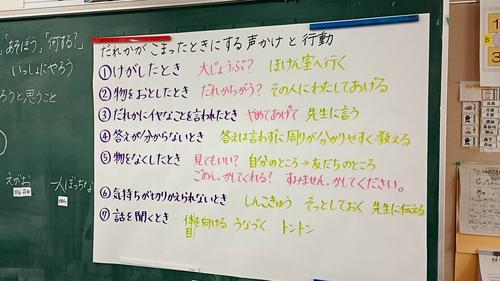 「あそぼう」「何する？」
いっしょにやろう
ろうと思うこと
えがお
一人ぼっちな
だれかがこまったときにする声かけと行動
①けがしたとき 大じょうぶ？ ほけん室へ行く
②物をおとしたとき だれかちがう？ その人にわたしてあげる
③だれかにイヤなことを言われたとき やめてあげて 先生に言う
④答えが分からないとき 答えは言わずに周りが分かりやすく教える
⑤物をなくしたとき 見てもいい？ 自分のところ→友だちのところ
ごめん、かしてくれる？ すみません、かしてください。
⑥気持ちが切りかえられないとき しんこきゅう そっとしておく 先生に伝える
⑦話を聞くとき 体を向ける うなづく トントン
目